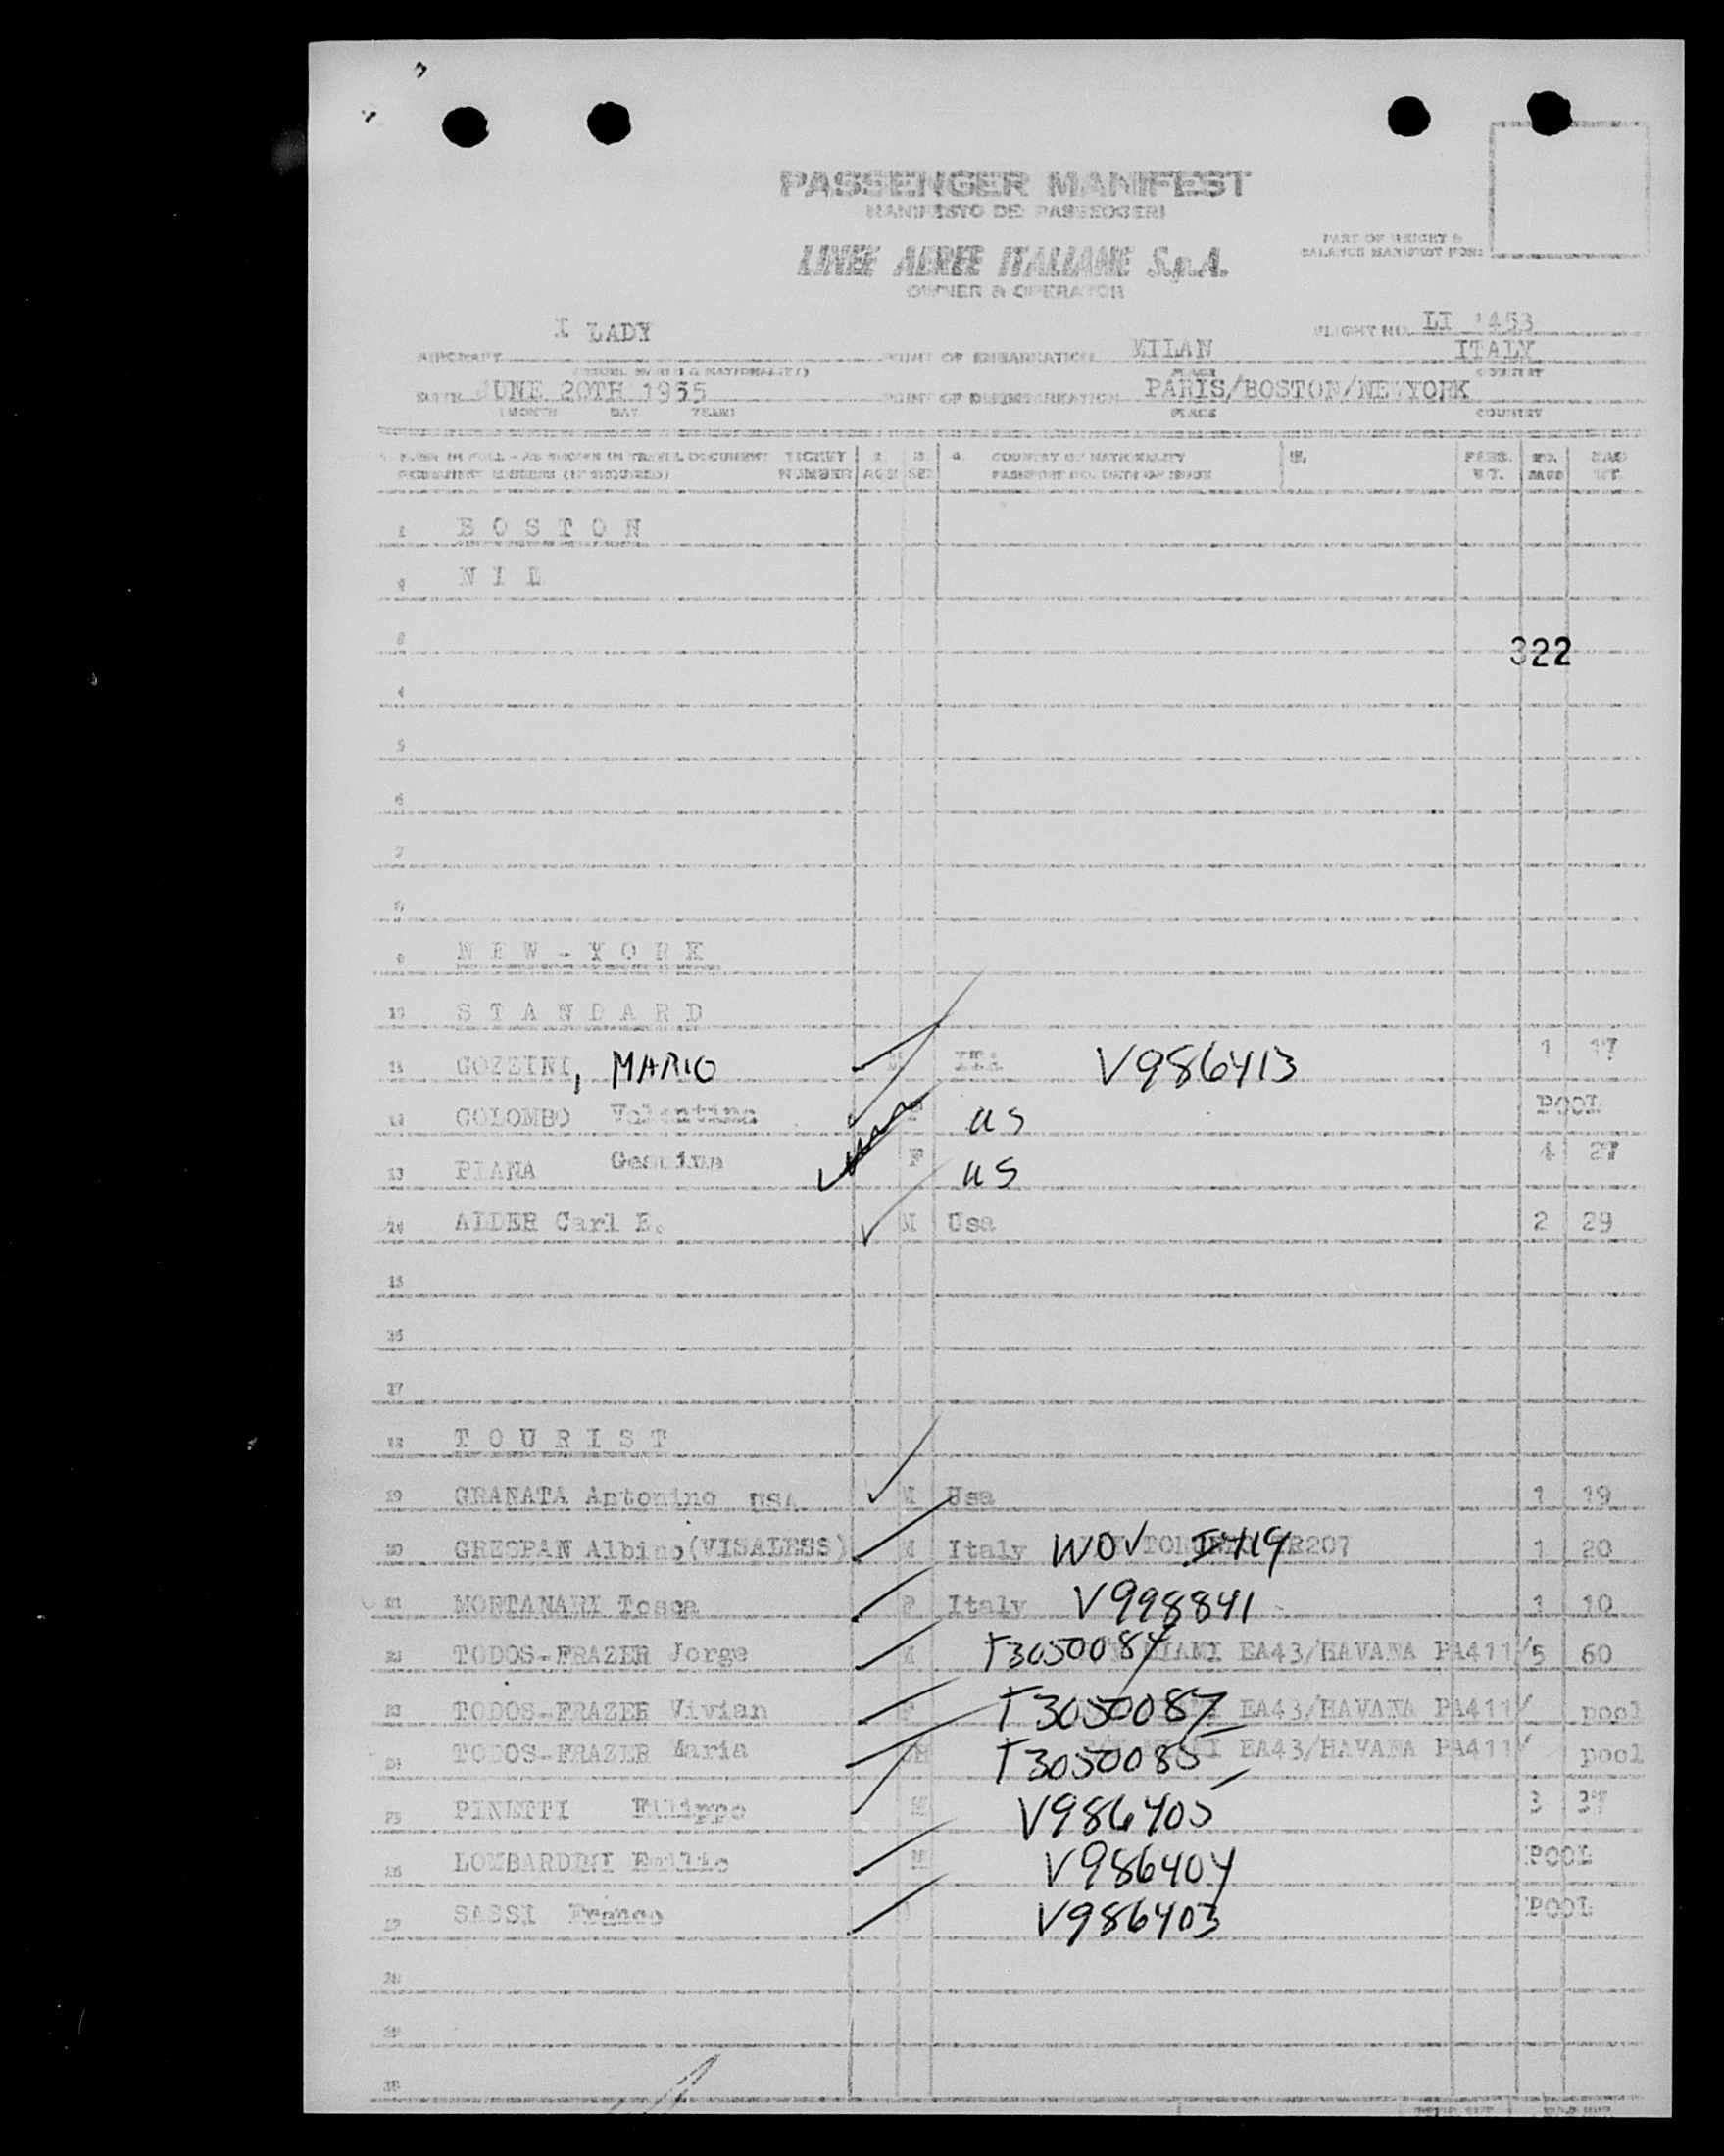 PASSENGER MANIFEST
MANIFESTO DEI PASSEGGERI
LINEE AEREE ITALIANE S.p.A.
OWNER & OPERATOR
PART OF WEIGHT &
BALANCE MANIFEST FOR:
I LADY
FLIGHT NO. LI 453
AIRCRAFT POINT OF EMBARKATION MILAN ITALY
PLACE COUNTRY
DATE JUNE 20TH 1955 POINT OF DISEMBARKATION PARIS/BOSTON/NEWYORK
MONTH DAY YEAR PLACE COUNTRY
NAME IN FULL - AS SHOWN IN TRAVEL DOCUMENT TICKET 2. 3. 4. COUNTRY OF NATIONALITY PERS. NO. BAG
PERMANENT ADDRESS (IF REQUIRED) NUMBER AGE SEX PASSPORT NO. DATE OF ISSUE WT. BAGS WT.
1 B O S T O N
2 N I L
3
322
4
5
6
7
8
9 N E W - Y O R K
10 S T A N D A R D
11 GOZZINI, MARIO M ITA V986413 1 17
12 COLOMBO Valentina F US POOL
13 PIANA Gesuina F US 4 27
14 ALDER Carl E. M Usa 2 29
15
16
17
18 T O U R I S T
19 GRANATA Antonino USA M Usa 1 19
20 GRESPAN Albino(VISALESS) M Italy WOV TORONTO 207 1 20
21 MONTANARI Tosca F Italy V998841 1 10
22 TODOS-FRAZER Jorge M T3050084 MIAMI EA43/HAVANA PA411/ 5 60
23 TODOS-FRAZER Vivian F T3050087 EA43/HAVANA PA411/ pool
24 TODOS-FRAZER Maria T3050085 EA43/HAVANA PA411/ pool
25 PINETTI Filippo M V986405 3 37
26 LOMBARDINI Emilio M V986404 POOL
27 SASSI Franco V986403 POOL
28
29
30